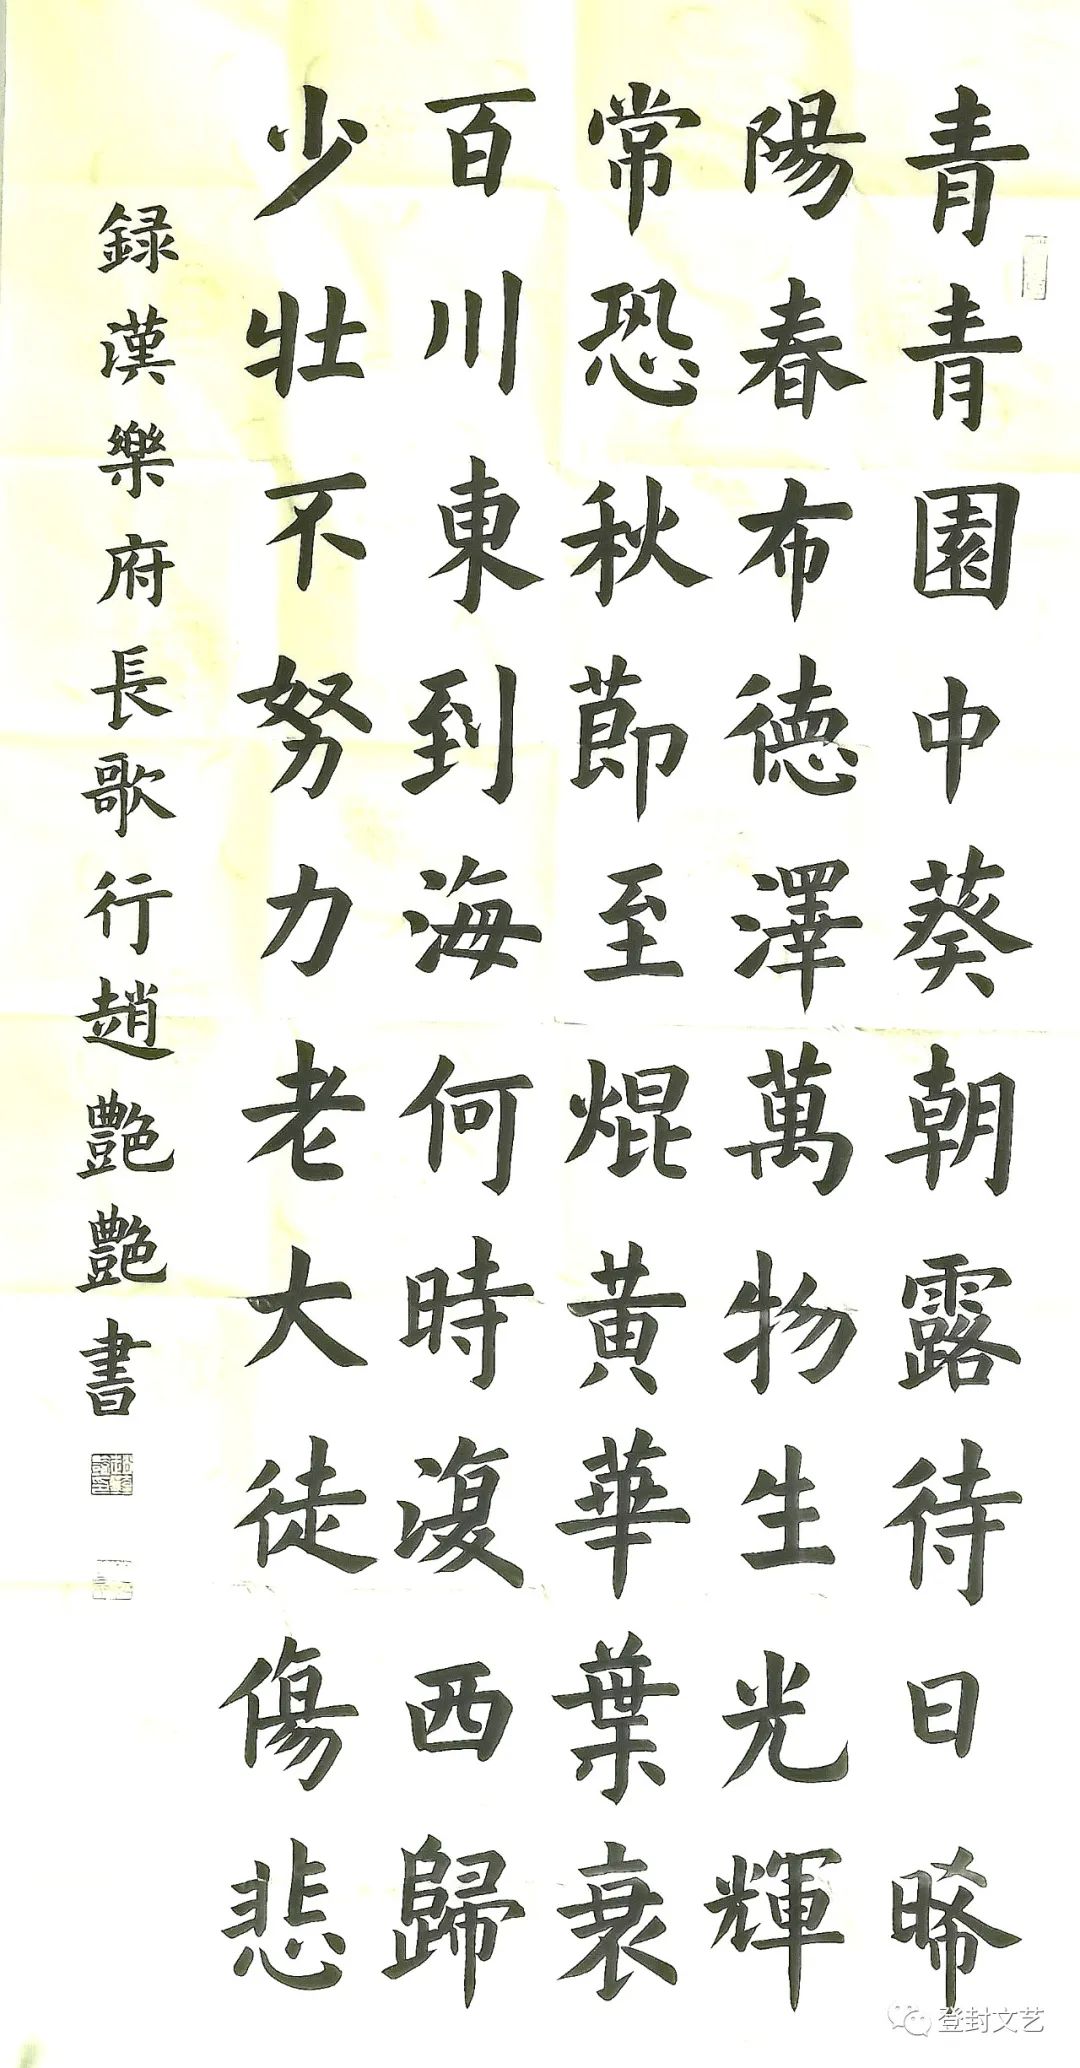 青青園中葵朝露待日晞
陽春布德澤萬物生光輝
常恐秋莭至焜黃華葉衰
百川東到海何時復西歸
少壯不努力老大徒傷悲
録漢樂府長歌行趙艷艷書
登封文艺